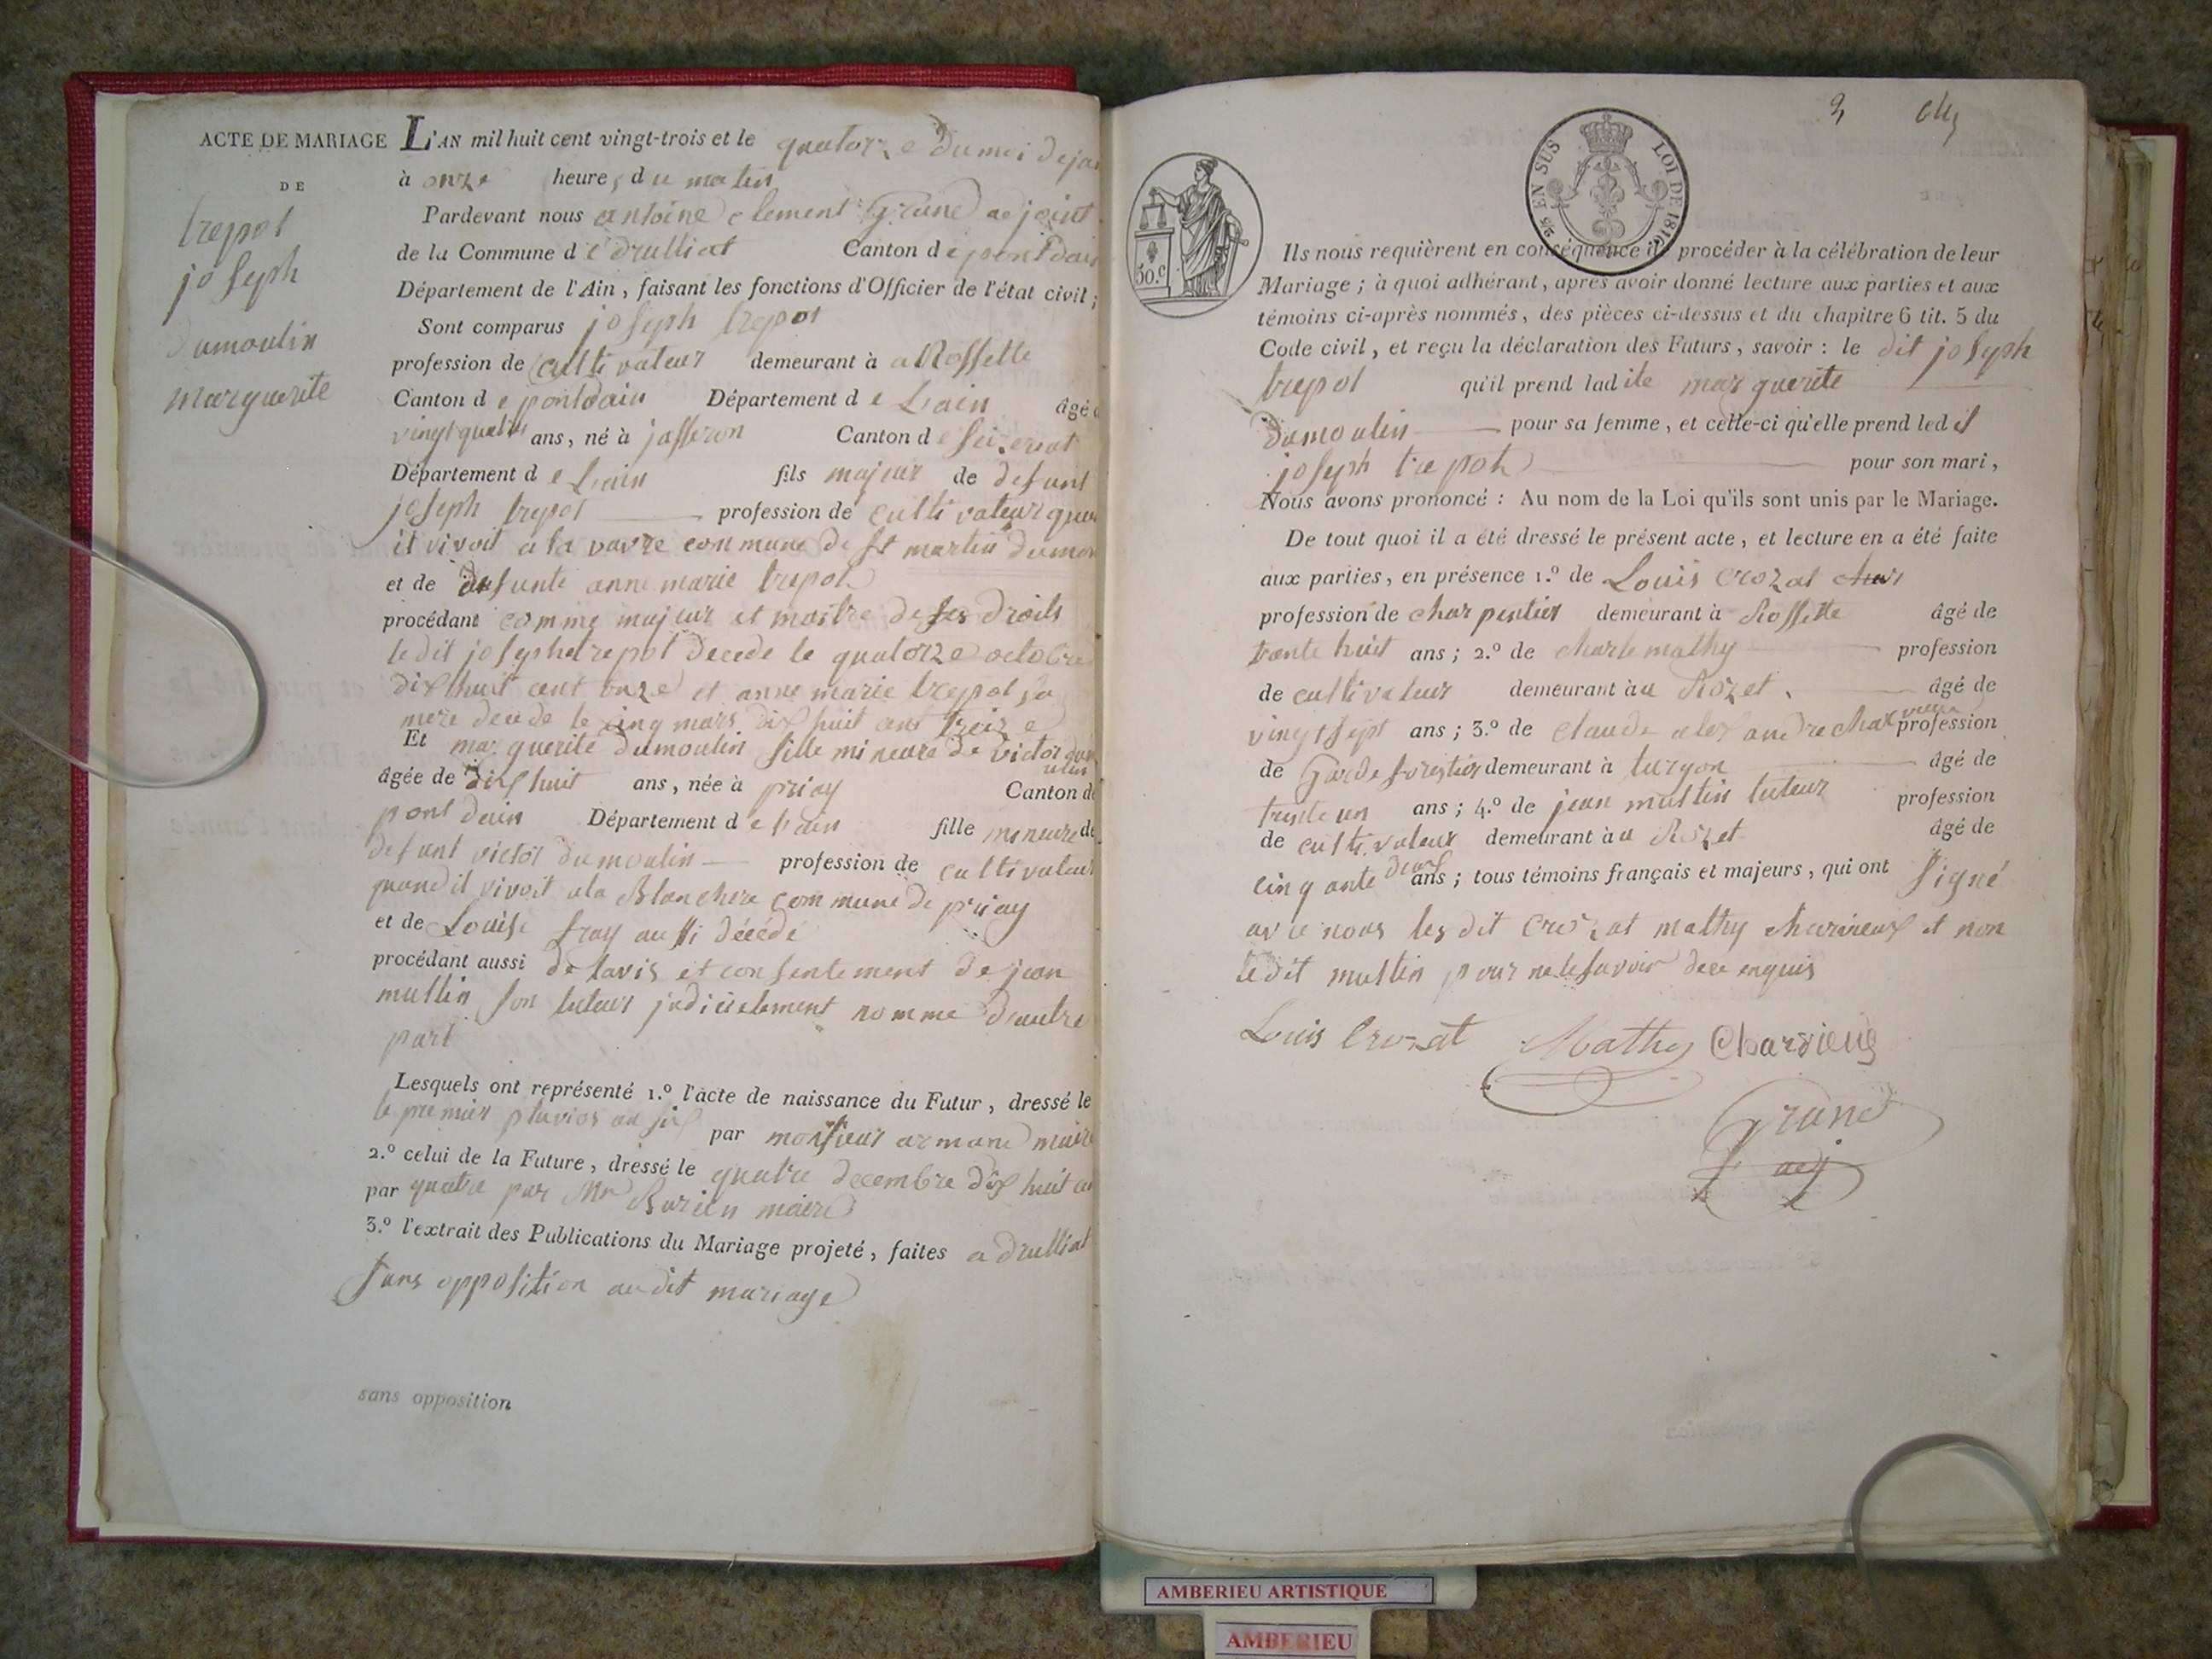 ACTE DE MARIAGE
DE
trepot
joseph
dumoulin
marguerite
L'AN mil huit cent vingt-trois et le quatorze du moi de jan
à onze heures du matin
Pardevant nous antoine clement Grand adjoint
de la Commune de druilliat Canton de pontdain
Département de l'Ain, faisant les fonctions d'Officier de l'état civil;
Sont comparus joseph trepot
profession de cultivateur demeurant à a Rossette
Canton de pontdain Département de L'ain âgé d
vingt quatre ans, né à jasseron Canton de
Département de L'ain fils majeur de defunt
joseph trepot profession de cultivateur quan
il vivoit a la vavre commune de st martin dumon
et de defunte anne marie trepot
procédant comme majeur et maitre de ses droits
le dit joseph trepot decede le quatorze octobre
dix huit cent onze et anne marie trepot sa
mere decede le cinq mars dix huit cent treize
Et marguerite dumoulin fille mineure de victor dumoulin
âgée de dix huit ans, née à priay Canton de
pont dain Département de L'ain fille mineure de
defunt victor dumoulin profession de cultivateur
quand il vivoit a la Blanchere commune de priay
et de Louise fray aussi décédé
procédant aussi de lavis et consentement de jean
mustin son tuteur judicielement nomme d'autre
part
Lesquels ont représenté 1.º l'acte de naissance du Futur, dressé le
le premier pluvios an six par monsieur armand maire
2.º celui de la Future, dressé le quatre decembre dix huit cen
par quatre par Mr maire
3.º l'extrait des Publications du Mariage projeté, faites a druilliat
sans opposition au dit mariage
sans opposition
EN SUS
LOI DE 1816
50.c
Ils nous requièrent en conséquence de procéder à la célébration de leur
Mariage; à quoi adhérant, après avoir donné lecture aux parties et aux
témoins ci-après nommés, des pièces ci-dessus et du chapitre 6 tit. 5 du
Code civil, et reçu la déclaration des Futurs, savoir: le dit joseph
trepot qu'il prend ladite marguerite
dumoulin pour sa femme, et celle-ci qu'elle prend ledit
joseph trepot pour son mari,
Nous avons prononcé: Au nom de la Loi qu'ils sont unis par le Mariage.
De tout quoi il a été dressé le présent acte, et lecture en a été faite
aux parties, en présence 1.º de Louis Crozat
profession de charpentier demeurant à Rossette âgé de
trante huit ans; 2.º de charle mathy profession
de cultivateur demeurant à au Rozet âgé de
vingt sept ans; 3.º de claude alexandre charvieux profession
de Garde forestier demeurant à turgon âgé de
trente un ans; 4.º de jean mustin tuteur profession
de cultivateur demeurant à au Rozet âgé de
cinqante deux ans; tous témoins français et majeurs, qui ont signé
avec nous les dit Crozat mathy charvieux et non
le dit mustin pour ne le savoir de ce enquis
Louis Crozat Mathy Charvieux
Grand
adj
AMBERIEU ARTISTIQUE
AMBERIEU